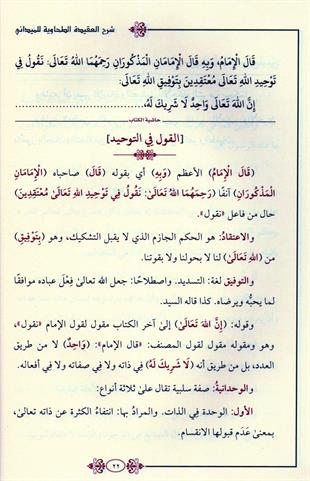 شرح العقيدة الطحاوية للميداني
قَالَ الإِمَامُ، وَبِهِ قَالَ الإِمَامَانِ المَذْكُورَانِ رَحِمَهُمَا اللهُ تَعَالَى: نَقُولُ فِي
تَوْحِيدِ اللهِ تَعَالَى مُعْتَقِدِينَ بِتَوْفِيقِ اللهِ تَعَالَى:
إِنَّ اللهَ تَعَالَى وَاحِدٌ لَا شَرِيكَ لَهُ،
حاشية الكتاب
[القول في التوحيد]
(قَالَ الإِمَامُ) الأعظم (وَبِهِ) أي بقوله (قَالَ) صاحباه (الإِمَامَانِ
المَذْكُورَانِ) آنفًا (رَحِمَهُمَا اللهُ تَعَالَى: نَقُولُ فِي تَوْحِيدِ اللهِ تَعَالَى مُعْتَقِدِينَ)
حال من فاعل «نقول».
والاعتقادُ: هو الحكم الجازم الذي لا يقبل التشكيك، وهو (بِتَوْفِيقِ)
من (اللهِ تَعَالَى) لنا لا بحولنا ولا بقوتنا.
والتوفيق لغة: التسديد. واصطلاحًا: جعل الله تعالى فِعْلَ عباده موافقًا
لما يحبُّه ويرضاه. كذا قاله السيد.
وقوله: (إِنَّ اللهَ تَعَالَى) إلى آخر الكتاب مقول لقول الإمام «نقول»،
وهو ومقوله مقول لقول المصنف: «قال الإمام»: (وَاحِدٌ) لا من طريق
العدد، بل من طريق أنه (لَا شَرِيكَ لَهُ) في ذاته ولا في صفاته ولا في أفعاله.
والوحدانية: صفة سلبية تقال على ثلاثة أنواع:
الأول: الوحدة في الذات. والمرادُ بها: انتفاءُ الكثرة عن ذاته تعالى،
بمعنى عَدَم قبولها الانقسام.
٢٢